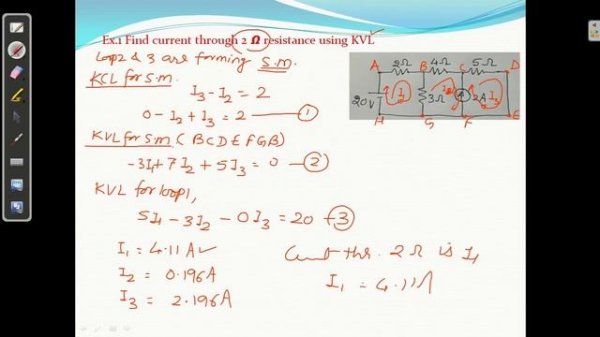 Ex.1 Find current through 2 Ω resistance using KVL
Loop 2 & 3 are forming S.m.
KCL for S.m.
I3 - I2 = 2
0 - I2 + I3 = 2 — 1
KVL for Sm ( B C D E F G B )
-3I1 + 7I2 + 5I3 = 0 — 2
KVL for loop 1,
5I1 - 3I2 - 0I3 = 20 — 3
I1 = 4.11 A ✓
I2 = 0.196 A
I3 = 2.196 A
Current thr. 2 Ω is I1
I1 = 4.11 A
A 2Ω B 4Ω C 5Ω D
20V I1 3Ω I2 2A I3
H G F E